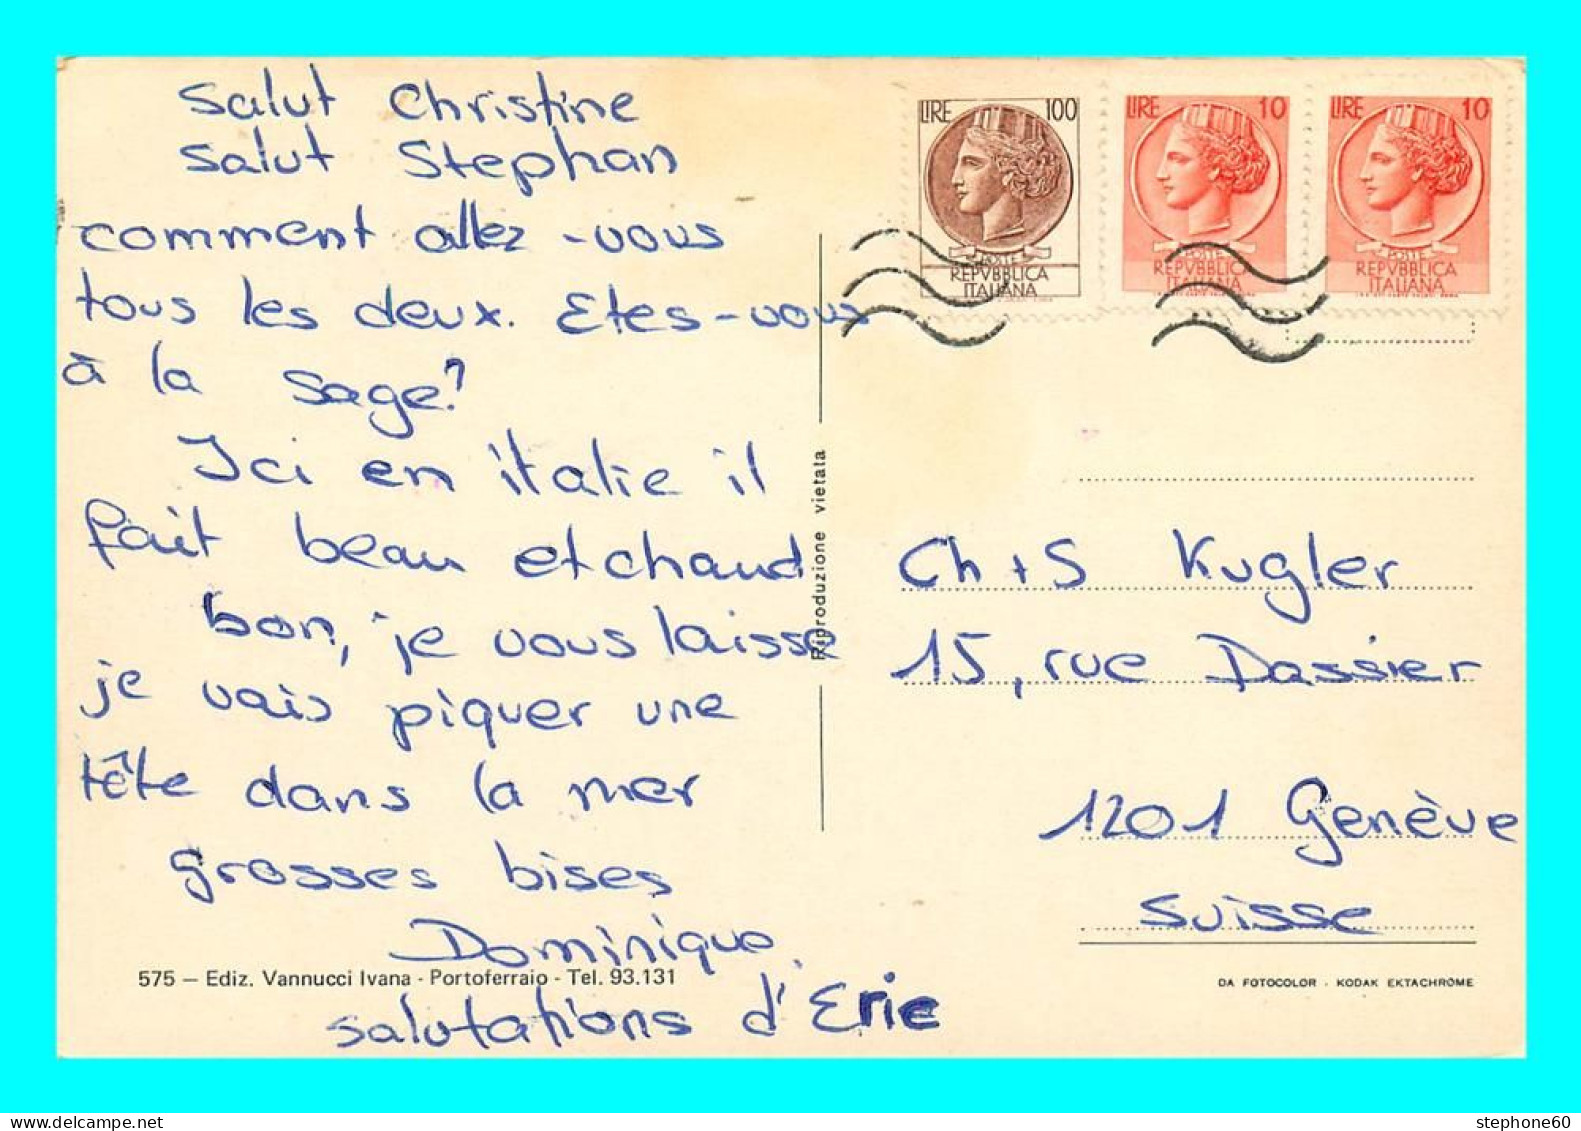 Salut Christine
Salut Stephan
comment allez-vous
tous les deux. Etes-vous
à la sage?
Ici en italie il
fait beau et chaud
bon, je vous laisse
je vais piquer une
tête dans la mer
grosses bises
Dominique
salutations d'Eric
575 — Ediz. Vannucci Ivana - Portoferraio - Tel. 93.131
Riproduzione vietata
LIRE 100
POSTE
REPVBBLICA
ITALIANA
LIRE 10
POSTE
REPVBBLICA
ITALIANA
LIRE 10
POSTE
REPVBBLICA
ITALIANA
Ch + S Kugler
15, rue Dassier
1201 Genève
Suisse
DA FOTOCOLOR - KODAK EKTACHROME
stephone60